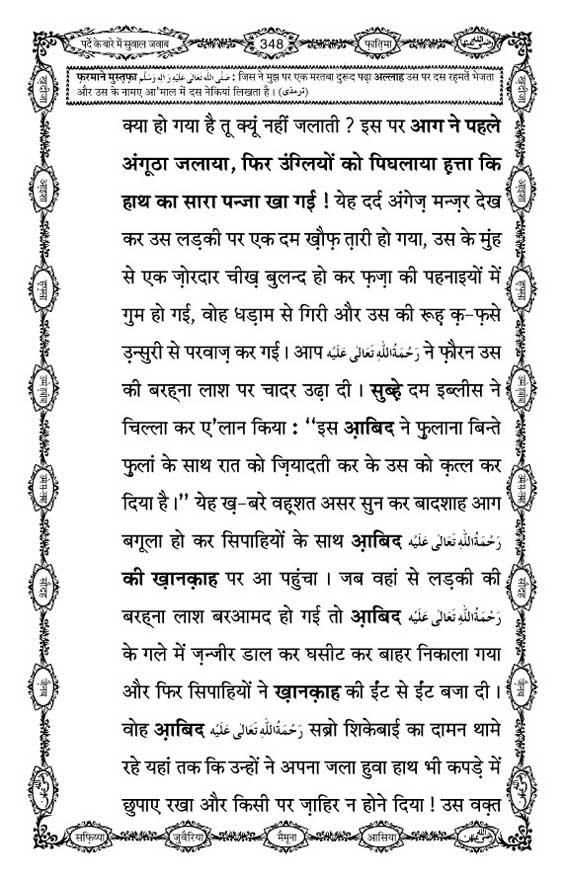 पर्दे के बारे में सुवाल जवाब
348
फ़ातिमा
رضي الله عنها
फ़रमाने मुस्तफ़ा صَلَّى اللهُ تَعَالٰى عَلَيْهِ وَاٰلِهٖ وَسَلَّم : जिस ने मुझ पर एक मरतबा दुरूद पढ़ा अल्लाह उस पर दस रहमतें भेजता
और उस के नामए आ'माल में दस नेकियां लिखता है। (ترمذی)
क्या हो गया है तू क्यूं नहीं जलाती ? इस पर आग ने पहले
अंगूठा जलाया, फिर उंग्लियों को पिघलाया हत्ता कि
हाथ का सारा पन्जा खा गई ! येह दर्द अंगेज़ मन्ज़र देख
कर उस लड़की पर एक दम ख़ौफ़ त़ारी हो गया, उस के मुंह
से एक ज़ोरदार चीख़ बुलन्द हो कर फ़ज़ा की पहनाइयों में
गुम हो गई, वोह धड़ाम से गिरी और उस की रूह़ क़-फ़से
उ़न्सुरी से परवाज़ कर गई। आप رَحْمَةُاللّٰهِ تَعَالٰى عَلَيْه ने फ़ौरन उस
की बरहना लाश पर चादर उढ़ा दी। सुब्हे़ दम इब्लीस ने
चिल्ला कर ए'लान किया : ‘‘इस आ़बिद ने फुलाना बिन्ते
फुलां के साथ रात को ज़ियादती कर के उस को क़त्ल कर
दिया है।’’ येह ख़-बरे वह़्शत असर सुन कर बादशाह आग
बगूला हो कर सिपाहियों के साथ आ़बिद رَحْمَةُاللّٰهِ تَعَالٰى عَلَيْه
की ख़ानक़ाह पर आ पहुंचा। जब वहां से लड़की की
बरहना लाश बरआमद हो गई तो आ़बिद رَحْمَةُاللّٰهِ تَعَالٰى عَلَيْه
के गले में ज़न्जीर डाल कर घसीट कर बाहर निकाला गया
और फिर सिपाहियों ने ख़ानक़ाह की ईंट से ईंट बजा दी।
वोह आ़बिद رَحْمَةُاللّٰهِ تَعَالٰى عَلَيْه सब्रो शिकेबाई का दामन थामे
रहे यहां तक कि उन्हों ने अपना जला हुवा हाथ भी कपड़े में
छुपाए रखा और किसी पर ज़ाहिर न होने दिया ! उस वक़्त
सफ़िय्या
जुवैरिया
मैमूना
आसिया